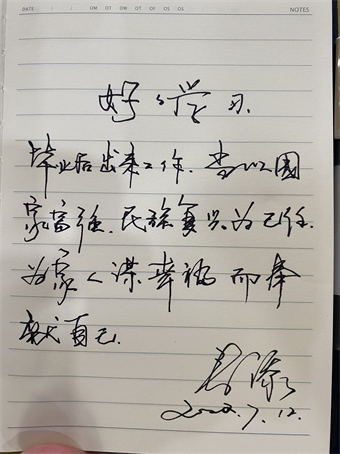 DATE / / OM OT OW OT OF OS OS NOTES
好々学习.
毕业后出来工作.当以國
家富强.民族复兴为己任.
为家人谋幸福 而奉
献自己.
7.12.